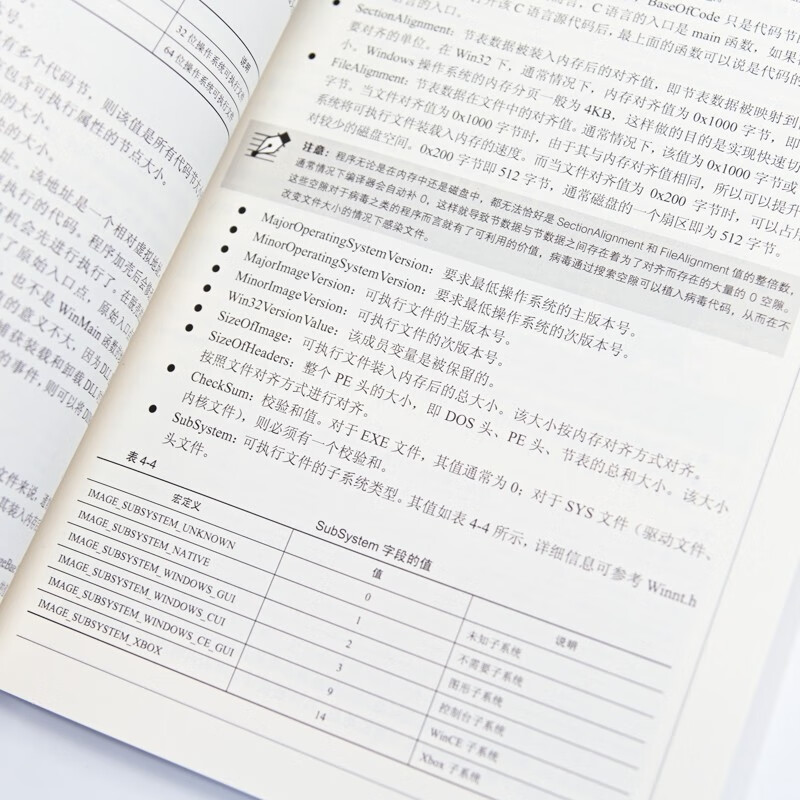 说明
32 位操作系统可执行文件
64 位操作系统可执行文件
有多个代码节，则该值是所有代码节大小
包含可执行属性的节点大小。
的大小。
的大小。
址。该地址是一个相对虚拟地
执行的代码，程序加壳后会修
有机会先进行执行了，在脱壳
了原始入口点，原始入口
，也不是 WinMain 函数
的意义不大，因为 DL
捕获装载和卸载 DLL
的事件，则可以将 D
文件来说，
BaseOfCode 只是代码节
开该 C 语言源代码后，最上面的函数可以说是代码的
C 语言的入口是 main 函数，如果
言的入口。
SectionAlignment：节表数据被装入内存后的对齐值，即节表数据被映射到
要对齐的单位。在 Win32 下，通常情况下，内存对齐值为 0x1000 字节，即
小。Windows 操作系统的内存分页一般为 4KB，这样做的目的是实现快速切
FileAlignment：节表数据在文件中的对齐值。通常情况下，该值为 0x1000 字节或
字节。当文件对齐值为 0x1000 字节时，由于其与内存对齐值相同，所以可以提升
系统将可执行文件装载入内存的速度。而当文件对齐值为 0x200 字节时，可以占用
对较少的磁盘空间。0x200 字节即 512 字节，通常磁盘的一个扇区即为 512 字节。
注意：程序无论是在内存中还是磁盘中，都无法恰好是 SectionAlignment 和 FileAlignment 值的整倍数，
通常情况下编译器会自动补 0，这样就导致节数据与节数据之间存在着为了对齐而存在的大量的 0 空隙。
这些空隙对于病毒之类的程序而言就有了可利用的价值，病毒通过搜索空隙可以植入病毒代码，从而在不
改变文件大小的情况下感染文件。
MajorOperatingSystemVersion：要求最低操作系统的主版本号。
MinorOperatingSystemVersion：要求最低操作系统的次版本号。
MajorImageVersion：可执行文件的主版本号。
MinorImageVersion：可执行文件的次版本号。
Win32VersionValue：该成员变量是被保留的。
SizeOfImage：可执行文件装入内存后的总大小。该大小按内存对齐方式对齐。
SizeOfHeaders：整个 PE 头的大小，即 DOS 头、PE 头、节表的总和大小。该大小
按照文件对齐方式进行对齐。
CheckSum：校验和值。对于 EXE 文件，其值通常为 0；对于 SYS 文件（驱动文件、
内核文件），则必须有一个校验和。
SubSystem：可执行文件的子系统类型。其值如表 4-4 所示，详细信息可参考 Winnt.h
头文件。
表 4-4
SubSystem 字段的值
宏定义 值 说明
IMAGE_SUBSYSTEM_UNKNOWN 0 未知子系统
IMAGE_SUBSYSTEM_NATIVE 1 不需要子系统
IMAGE_SUBSYSTEM_WINDOWS_GUI 2 图形子系统
IMAGE_SUBSYSTEM_WINDOWS_CUI 3 控制台子系统
IMAGE_SUBSYSTEM_WINDOWS_CE_GUI 9 WinCE 子系统
IMAGE_SUBSYSTEM_XBOX 14 Xbox 子系统